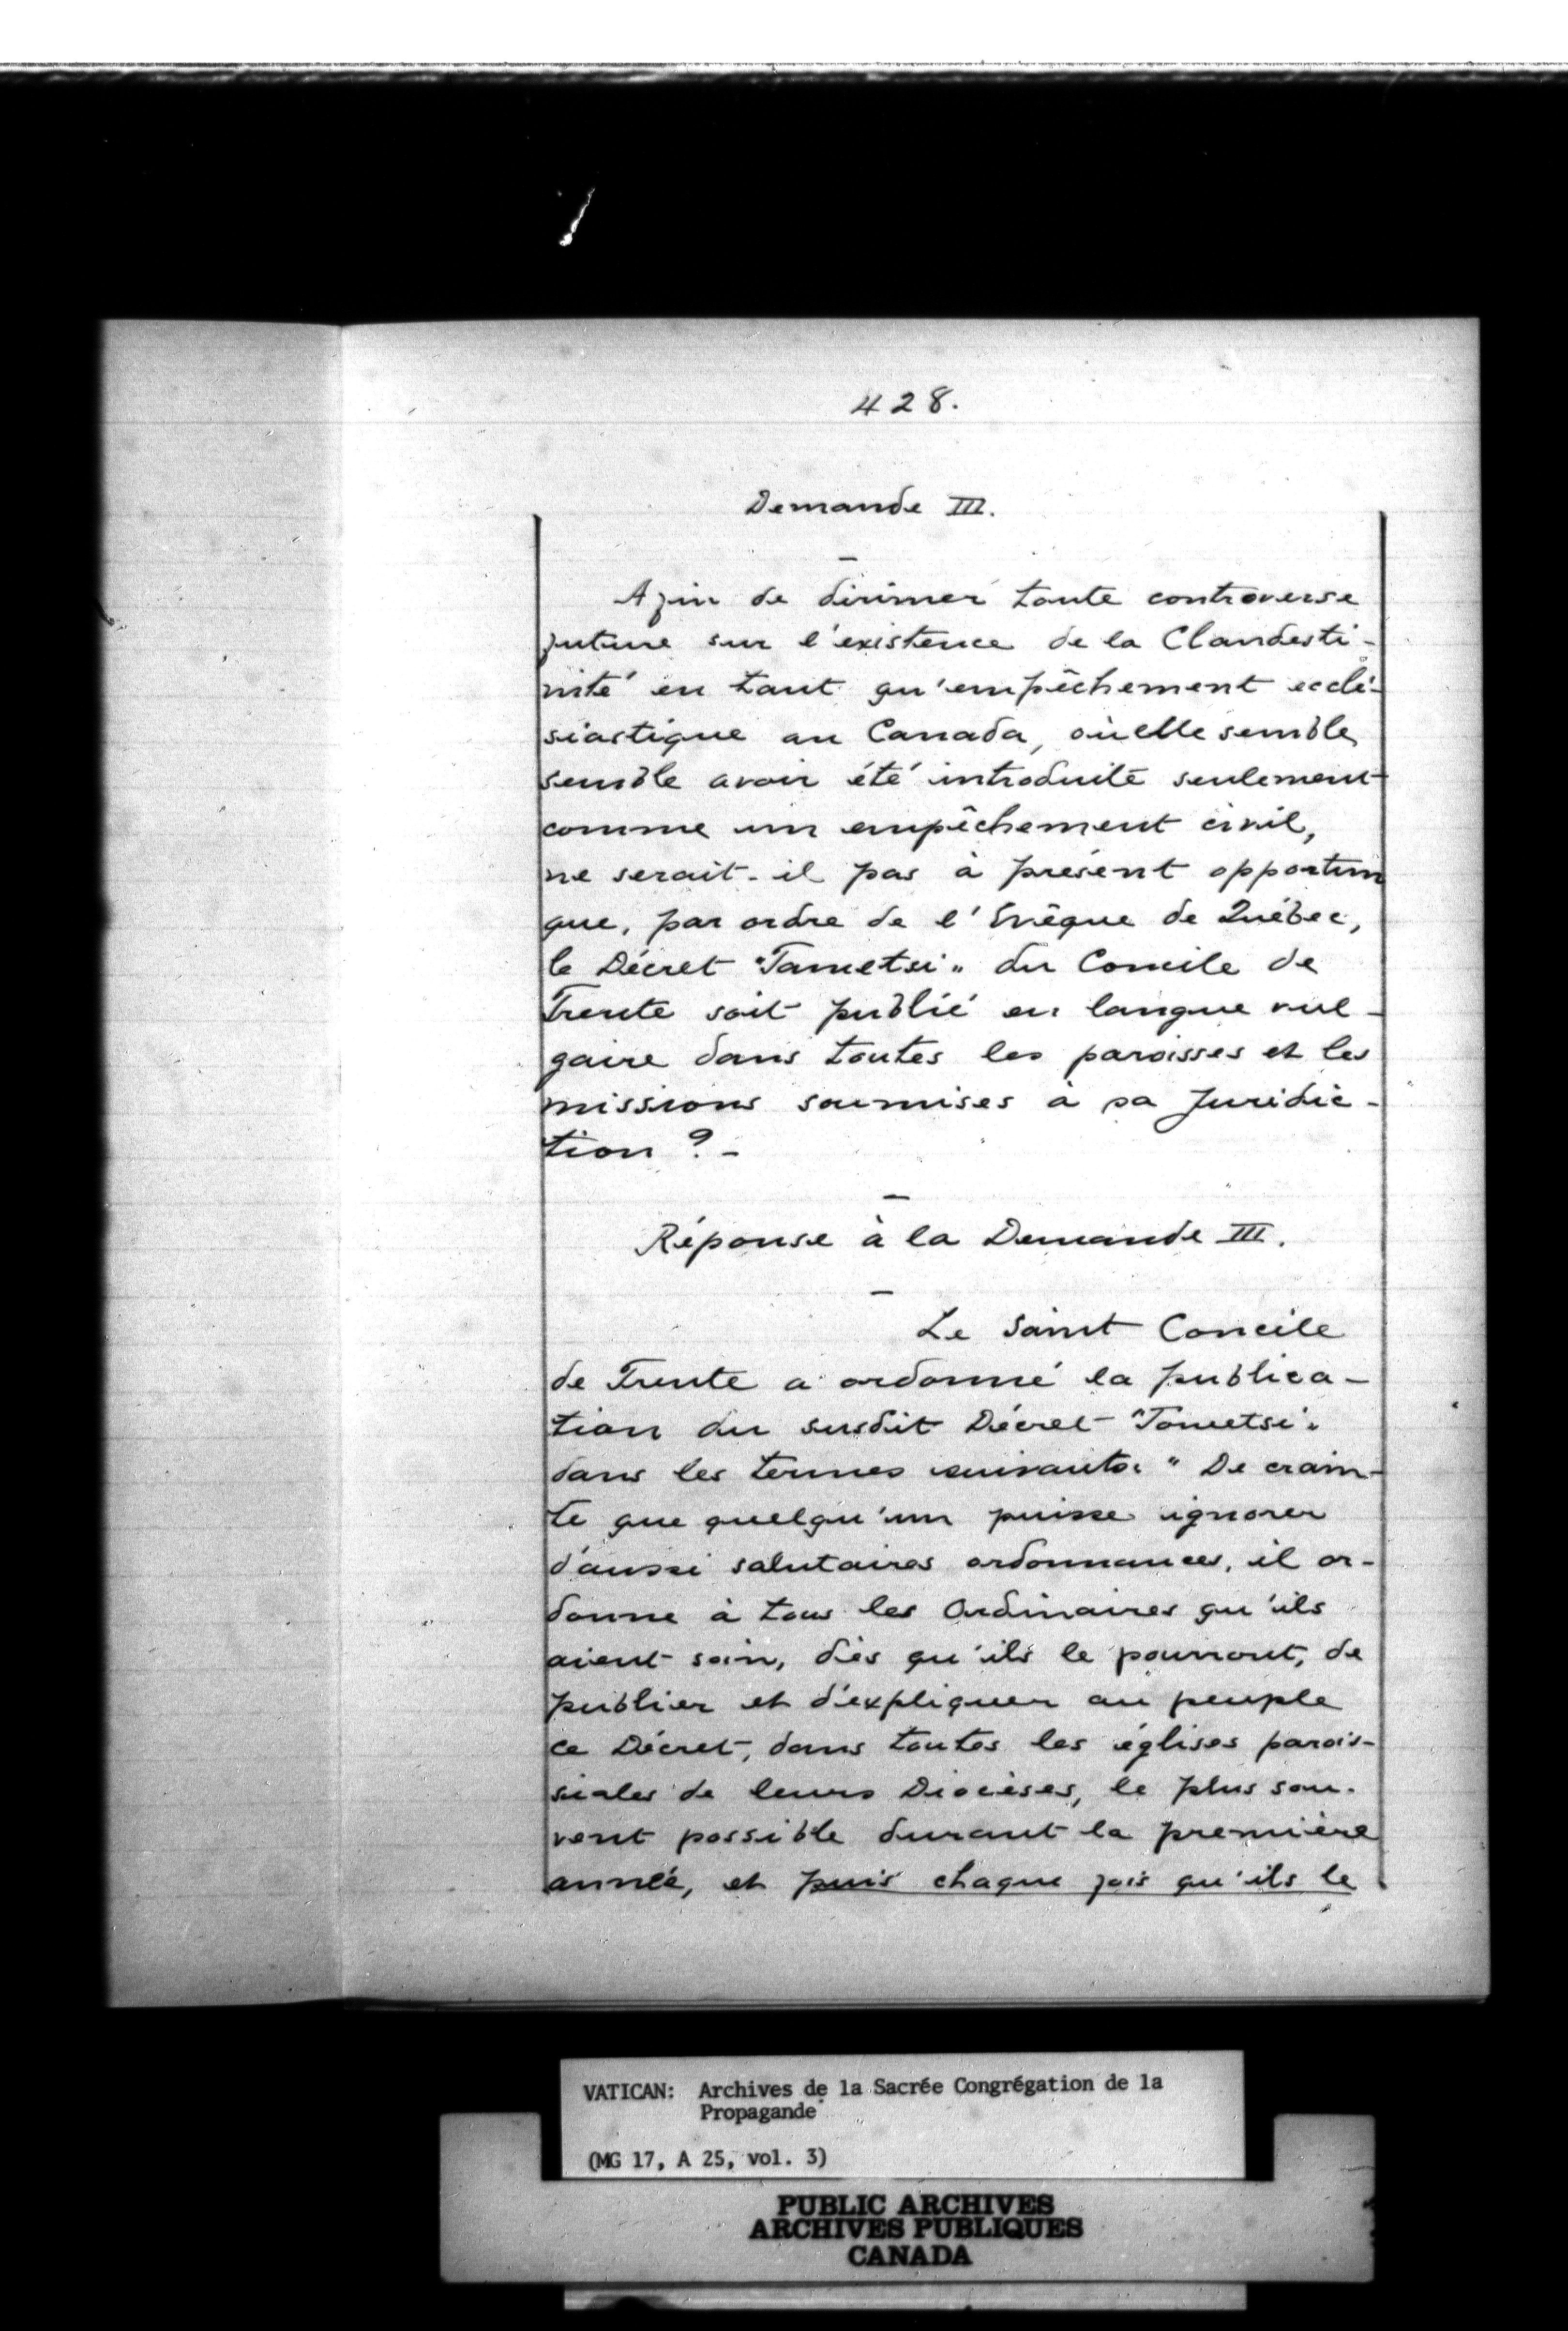 428.
Demande III.
Afin de dirimer toute controverse
future sur l'existence de la Clandesti-
nité en tant qu'empêchement ecclé-
siastique au Canada, où elle semble
semble avoir été introduite seulement
comme un empêchement civil,
ne serait-il pas à présent opportun
que, par ordre de l'Evêque de Québec,
le Décret "Tametsi" du Concile de
Trente soit publié en langue vul-
gaire dans toutes les paroisses et les
missions soumises à sa Juridic-
tion ? -
Réponse à la Demande III.
Le Saint Concile
de Trente a ordonné la publica-
tion du susdit Décret "Tametsi"
dans les termes suivants: " De crain-
te que quelqu'un puisse ignorer
d'aussi salutaires ordonnances, il or-
donne à tous les Ordinaires qu'ils
aient soin, dès qu'ils le pourront, de
publier et d'expliquer au peuple
ce Décret, dans toutes les églises parois-
siales de leurs Diocèses, le plus sou-
vent possible durant la première
année, et puis chaque fois qu'ils le
VATICAN: Archives de la Sacrée Congrégation de la
Propagande
(MG 17, A 25, vol. 3)
PUBLIC ARCHIVES
ARCHIVES PUBLIQUES
CANADA